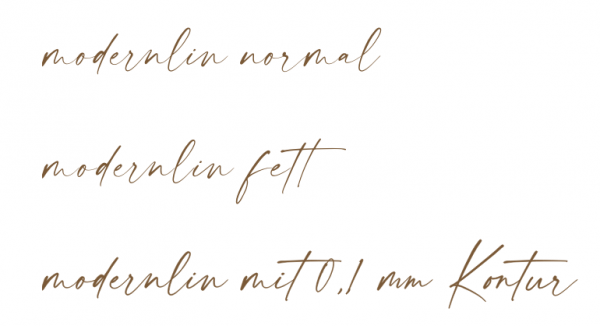 modernlin normal
modernlin fett
modernlin mit 0,1 mm Kontur